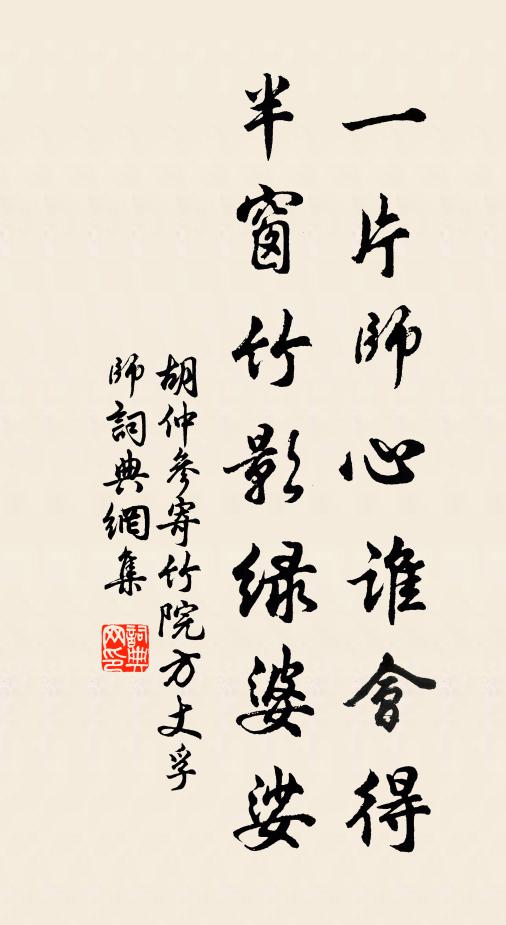 一片師心誰會得
半窗竹影綠婆娑
胡仲參寄竹院方丈孚
師詞典網集
詞典網印